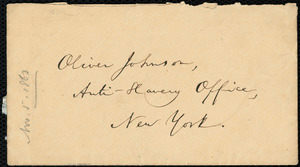 Oliver Johnson,
Anti-Slavery Office,
New York.
Nov. 5. 1863